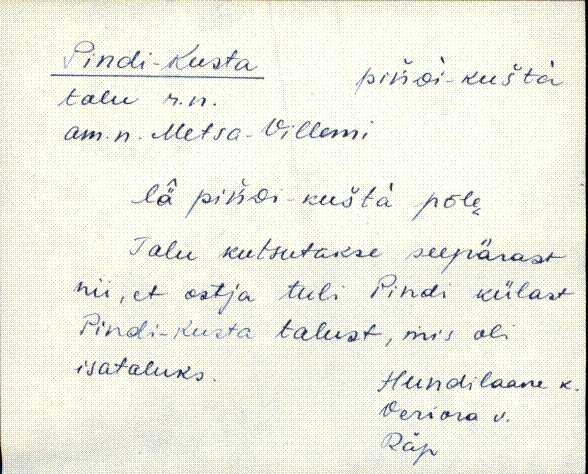 Pindi-Kusta piňďi-kuštà
talu r.n.
am.n. Metsa-Villemi
lä̂ piňďi-kuštà põlę
Talu kutsutakse seepärast
nii, et ostja tuli Pindi külast
Pindi-Kusta talust, mis oli
isataluks.
Hundilaane k.
Veriora v.
Räp